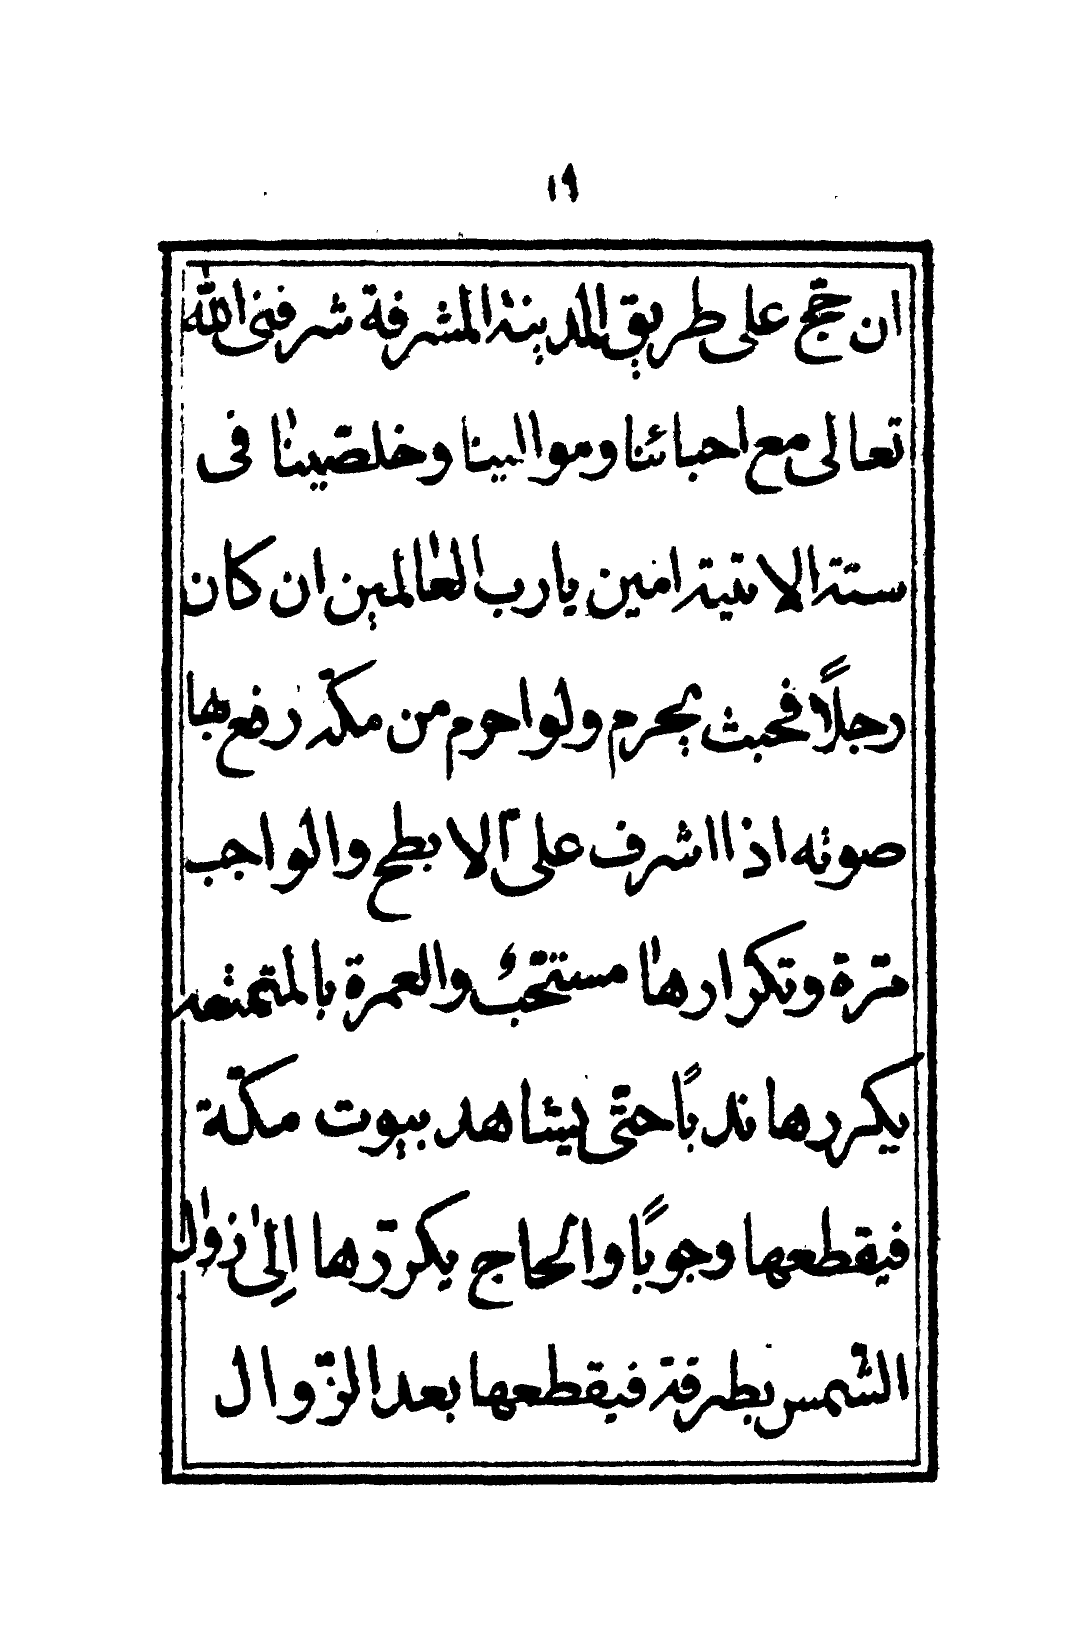 ١٩
ان حجّ على طريق المدينة المشرفة شرفنى الله
تعالى مع احبائنا وموالينا وخلصّيننا فى
ستة الاتية امين يارب العالمين ان كان
رجلًا فحيث يحرم ولواحرم من مكّة رفع بها
صوته اذا اشرف على الابطح والواجب
مرّة وتكرارها مستحّب والعمرة بالمتمتعة
يكررها ندبًا حتّى يشاهد بيوت مكّة
فيقطعها وجوبًا والحاج يكرّرها الى زوال
الشّمس بطرقة فيقطعها بعد الزّوال